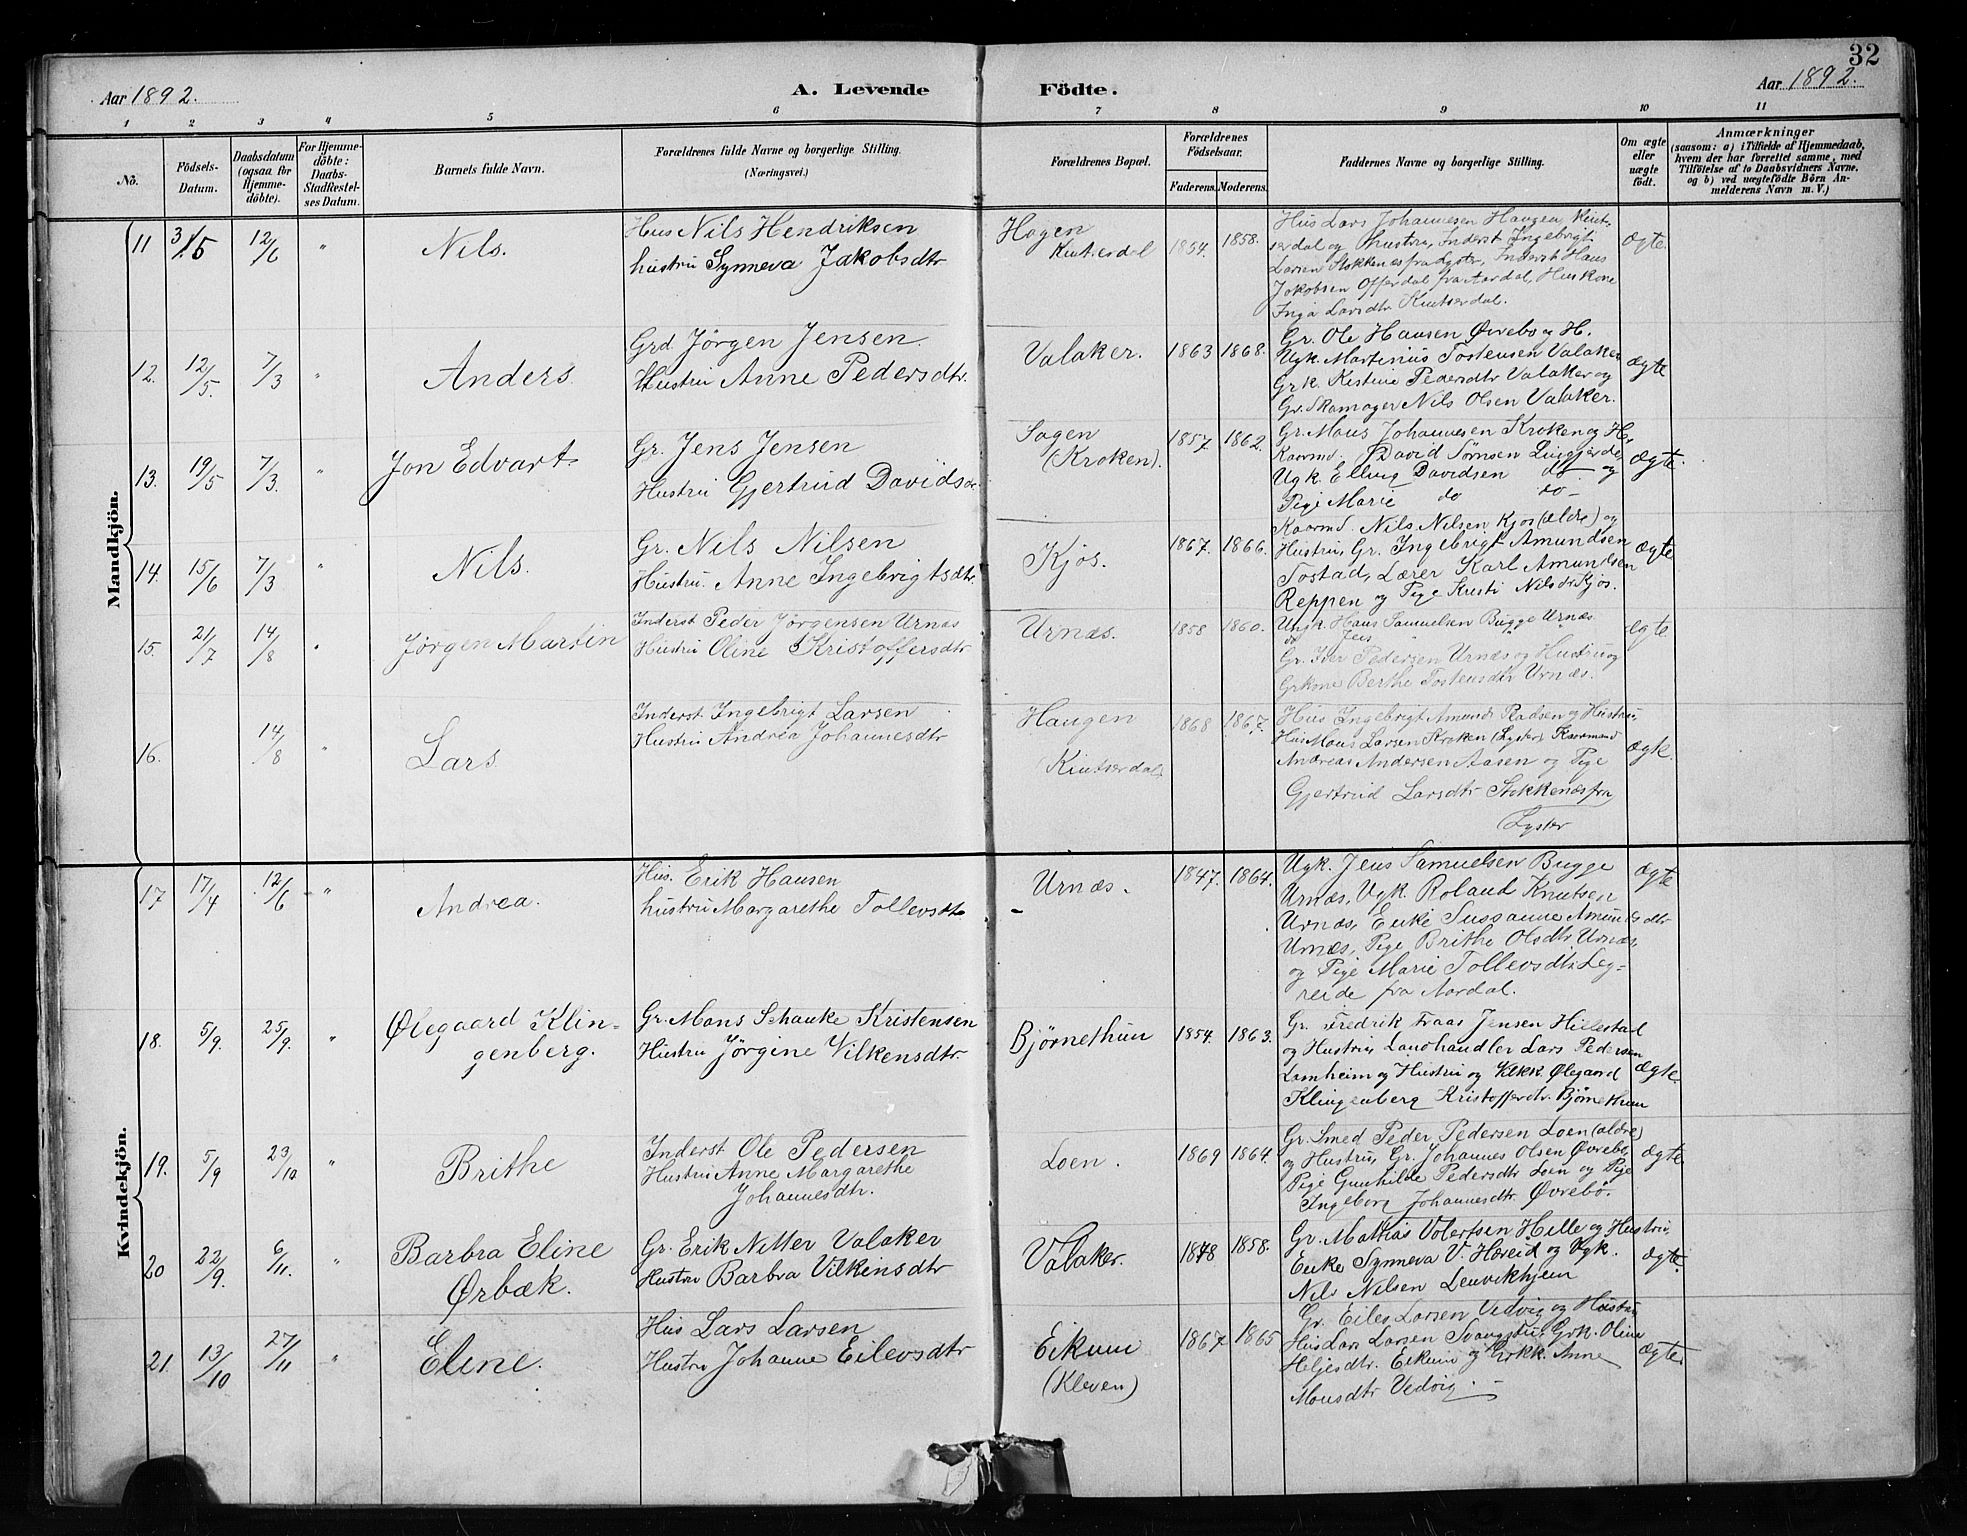 32
Aar 1892.
A. Levende
Födte.
Aar 1892.
1 2 3 4 5 6 7 8 9 10 11
No.
Födsels-
Datum.
Daabsdatum
(ogsaa for
Hjemme-
döbte).
For Hjemme-
döbte:
Daabs-
Stadfestel-
ses Datum.
Barnets fulde Navn.
Forældrenes fulde Navne og borgerlige Stilling.
(Næringsvei.)
Forældrenes Bopæl.
Forældrenes
Födselsaar.
Faderens. Moderens.
Faddernes Navne og borgerlige Stilling.
Om ægte
eller
uægte
födt.
Anmærkninger
(saasom: a) i Tilfælde af Hjemmedaab,
hvem der har forrettet samme, med
Tilföielse af to Daabsvidners Navne,
og b) ved uægtefödte Börn An-
melderens Navn m. V.)
Mandkjön.
11 31/5 12/6 "
Nils.
Hus Nils Hendriksen
hustru Synneva Jakobsdtr
Hagen
Kintserdal
1854. 1858.
Hus Lars Johannesen Haugen Kint-
serdal og hustru, Inderst Ingebrigt
Larsen Stokkenæs fra Lyster, Inderst Hans
Jakobsen Offerdal fra Aardal, Huskone
Inga Larsdtr Kintserdal.
ægte.
12. 12/5. 7/3 "
Anders.
Grd Jörgen Jensen.
Hustru Anne Pedersdtr.
Valaker.
1863 1868.
Gr. Ole Hansen Øvrebø og H.
Ugk. Martinus Tostensen Valaker
Grk. Kistine Pedersdtr Valaker og
Gr. Skomager Nils Olsen Valaker.
ægte
13. 19/5 7/3. "
Jon Edvart
Gr. Jens Jensen
Hustru Gjertrud Davidsdr
Sagen
(Kroken).
1857 1862.
Gr. Mons Johannesen Kroken og H.
Kaarmd. David Sømsen Lingjerde,
Ugk. Elling Davidsen do og
Pige Marie do do
ægte.
14. 15/6 7/3 "
Nils.
Gr. Nils Nilsen
Hustru. Anne Ingebrigtsdtr.
Kjös.
1867. 1866.
Kaarmd. Nils Nilsen Kjos (ældre) og
Hustru, Gr. Ingebrigt Amundsen
Tostad, Lærer Karl Amundsen
Reppen og Pige Kristi Nilsdr Kjos.
ægte
15. 21/7 14/8 "
Jörgen Martin
Inderst Peder Jørgensen Urnæs
Hustru Oline Kristoffersdtr
Urnæs.
1858 1860.
Ungk. Hans Samuelsen Bugge Urnæs.
do Jens " "
Gr. Iver Pedersen Urnæs og Hustru og
Grkone Berthe Tostensdtr Urnæs.
ægte
16. 14/8 "
Lars
Inderst Ingebrigt Larsen
Hustru Andrea Johannesdtr
Haugen
Kintserdal
1868 1867.
Hus Ingebrigt Amund og Hustru,
Hus Mons Larsen Kroken (Lyster) Kaarmand
Andreas Andersen Aasen og Pige
Gjertrud Larsdtr Stokkenæs fra
Lyster
ægte.
Kvindekjön.
17 17/4 12/6 "
Andrea.
Hus. Erik Hansen
hustru Margarethe Tollevsdtr
Urnæs.
1847. 1864.
Ugk. Jens Samuelsen Bugge
Urnæs, Ugk. Roland Knutsen
Urnæs, Enke Sussanne Amundsdtr
Urnæs, Pige Brithe Olsdtr Urnæs,
og Pige Marie Tollevsdtr Leg-
reide fra Aardal.
ægte
18. 5/9. 25/9. "
Ølegaard Klin-
genberg.
Gr. Mons Schanke Kristensen
Hustru Jörgine Vilkensdtr
Bjørnethun
1854. 1863.
Gr. Fredrik Fraas Jensen Hillestad
og Hustru, Landhandler Lars Pedersen
Lamheim og Hustru og Ølegaard
Klingenberg Kristofferdtr. Bjørnethun
ægte.
19. 5/9 23/10 "
Brithe
Inderst Ole Pedersen
Hustru Anne Margarethe
Johannesdtr.
Loen.
1869 1864.
Gr. Smed Peder Pedersen Loen (ældre)
og Hustru, Gr. Johannes Olsen Øvrebø,
Pige Gunhilde Pedersdtr Loen og Pige
Ingeborg Johannesdtr Øvrebø.
ægte
20 22/9. 6/11. "
Barbra Eline
Ørbæk.
Gr. Erik Nitter Valaker
Hustru Barbra Vilkensdtr
Valaker.
1848 1858.
Gr. Mathias Volertsen Hille og Hustru,
Enke Synneva V. Høreid og Ugk.
Nils Nilsen Lenvikhjem
ægte.
21. 13/10 27/11 "
Eline.
Hus Lars Larsen
Hustru Johanne Eilevsdtr
Eikum
(Kleven)
1867 1865
Gr. Eilev Larsen Vedvig og Hustru
Hus Lars Larsen Svangstu, Grk. Oline
Heljesdtr. Eikum og Grkk. Anne
Monsdtr Vedvig.
ægte